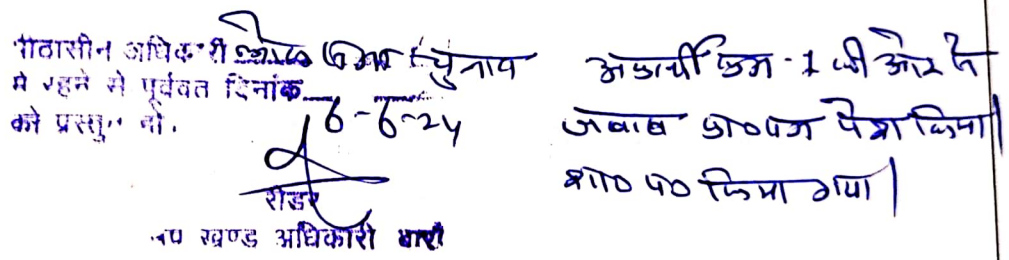 पीठासीन अधिकारी लोक सभा चुनाव
मे रहने से पूर्ववत दिनांक
6-6-24
को प्रस्तु हो.
रीडर
उप खण्ड अधिकारी बाड़ी
अप्रार्थी क्रम-1 की ओर से
जवाब प्रा०पत्र पेश किया।
शा० प० किया गया।